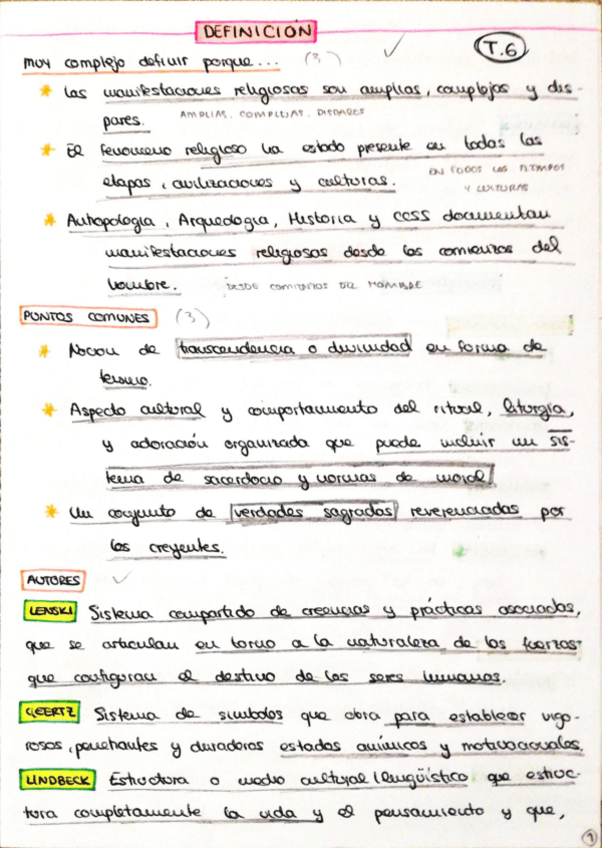 DEFINICIÓN
T.6
muy complejo definir porque... (3)
* Las manifestaciones religiosas son amplias, complejas y dis-
pares. AMPLIAS, COMPLEJAS, DISPARES
* El fenomeno religioso ha estado presente en todas las
etapas, civilizaciones y culturas. EN TODOS LOS TIEMPOS
Y CULTURAS
* Antropologia, Arqueologia, Historia y CCSS documentan
manifestaciones religiosas desde los comienzos del
hombre. DESDE COMIENZOS DEL HOMBRE
PUNTOS COMUNES (3)
* Nocion de transcendencia o divinidad en forma de
teismo.
* Aspecto cultural y comportamiento del ritual, liturgia,
y adoración organizada que puede incluir un sis-
tema de sacerdocio y normas de moral
* Un conjunto de verdades sagradas reverenciadas por
los creyentes.
AUTORES
LENSKI Sistema compartido de creencias y prácticas asociadas,
que se articulan en torno a la naturaleza de las fuerzas
que configuran el destino de los seres humanos.
GEERTZ Sistema de simbolos que obra para establecer vigo-
rosos, penetrantes y duraderos estados anímicos y motivacionales.
LINDBECK Estructura o medio cultural lingüístico que estruc-
tura completamente la vida y el pensamiento y que,
1